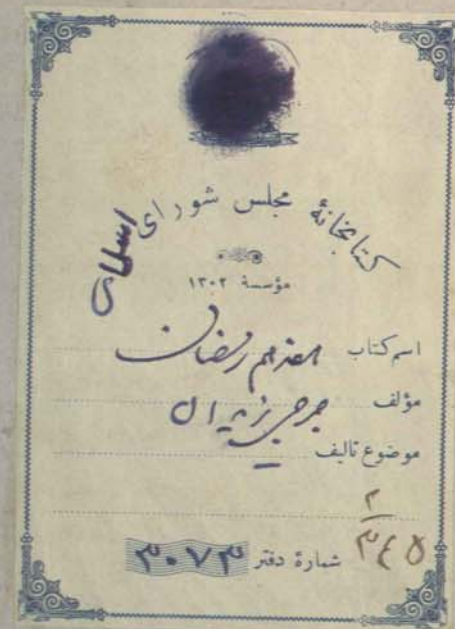 کتابخانهٔ مجلس شورای اسلامی
مؤسسهٔ ۱۳۰۲
اسم کتاب هفدهم رمضان
مؤلف جرجی زیدان
موضوع تالیف
۲
۳٤۵
شمارهٔ دفتر ۳۰۷۳